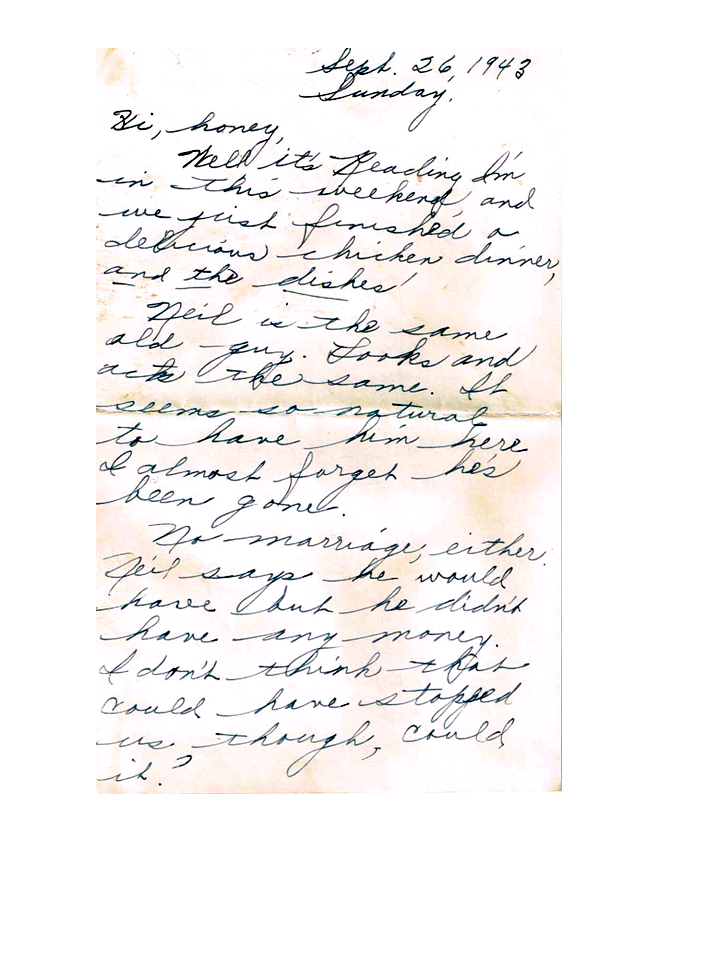 Sept. 26, 1943
Sunday.
Hi, honey,
Well it's Reading I'm
in this weekend, and
we just finished a
delicious chicken dinner,
and the dishes!
Neil is the same
old guy. Looks and
acts the same. It
seems so natural
to have him here
I almost forget he's
been gone.
No marriage, either.
Neil says he would
have but he didn't
have any money.
I don't think that
could have stopped
us though, could
it?